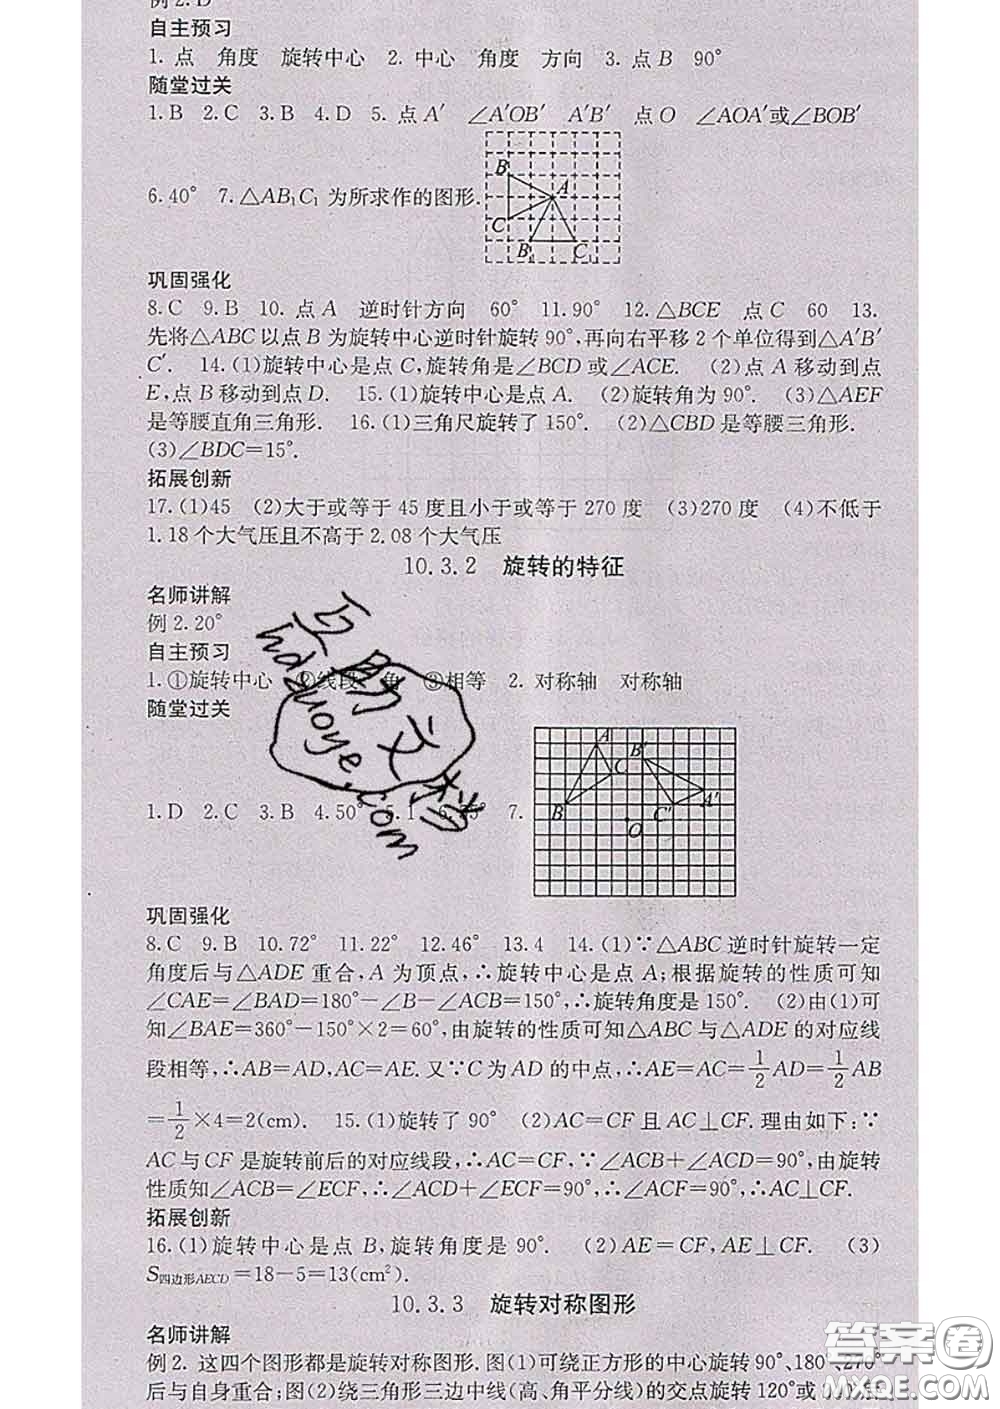 例2.D
自主预习
1. 点 角度 旋转中心 2. 中心 角度 方向 3. 点B 90°
随堂过关
1.B 2.C 3.B 4.D 5. 点A′ ∠A′OB′ A′B′ 点O ∠AOA′或∠BOB′
6.40° 7.△AB₁C₁ 为所求作的图形.
B A C B₁ C₁
巩固强化
8.C 9.B 10. 点A 逆时针方向 60° 11.90° 12.△BCE 点C 60 13.
先将△ABC以点B为旋转中心逆时针旋转90°,再向右平移2个单位得到△A′B′
C′. 14.(1)旋转中心是点C,旋转角是∠BCD或∠ACE. (2)点A移动到点
E,点B移动到点D. 15.(1)旋转中心是点A. (2)旋转角为90°. (3)△AEF
是等腰直角三角形. 16.(1)三角尺旋转了150°. (2)△CBD是等腰三角形.
(3)∠BDC=15°.
拓展创新
17.(1)45 (2)大于或等于45度且小于或等于270度 (3)270度 (4)不低于
1.18个大气压且不高于2.08个大气压
10.3.2 旋转的特征
名师讲解
例2.20°
自主预习
1.①旋转中心 ②线段 角 ③相等 2. 对称轴 对称轴
随堂过关
A B′ C B C′ A′ O
1.D 2.C 3.B 4.50° 7.
巩固强化
8.C 9.B 10.72° 11.22° 12.46° 13.4 14.(1)∵△ABC逆时针旋转一定
角度后与△ADE重合,A为顶点,∴旋转中心是点A;根据旋转的性质可知
∠CAE=∠BAD=180°-∠B-∠ACB=150°,∴旋转角度是150°. (2)由(1)可
知∠BAE=360°-150°×2=60°,由旋转的性质可知△ABC与△ADE的对应线
段相等,∴AB=AD,AC=AE.又∵C为AD的中点,∴AE=AC=1/2AD=1/2AB
=1/2×4=2(cm). 15.(1)旋转了90° (2)AC=CF且AC⊥CF.理由如下:∵
AC与CF是旋转前后的对应线段,∴AC=CF,∵∠ACB+∠ACD=90°,由旋转
性质知∠ACB=∠ECF,∴∠ACD+∠ECF=90°,∴∠ACF=90°,∴AC⊥CF.
拓展创新
16.(1)旋转中心是点B,旋转角度是90°. (2)AE=CF,AE⊥CF. (3)
S四边形AECD=18-5=13(cm²).
10.3.3 旋转对称图形
名师讲解
例2. 这四个图形都是旋转对称图形.图(1)可绕正方形的中心旋转90°、180°、270°
后与自身重合;图(2)绕三角形三边中线(高、角平分线)的交点旋转120°或
hdzuoye.com
答案圈
MXQE.COM